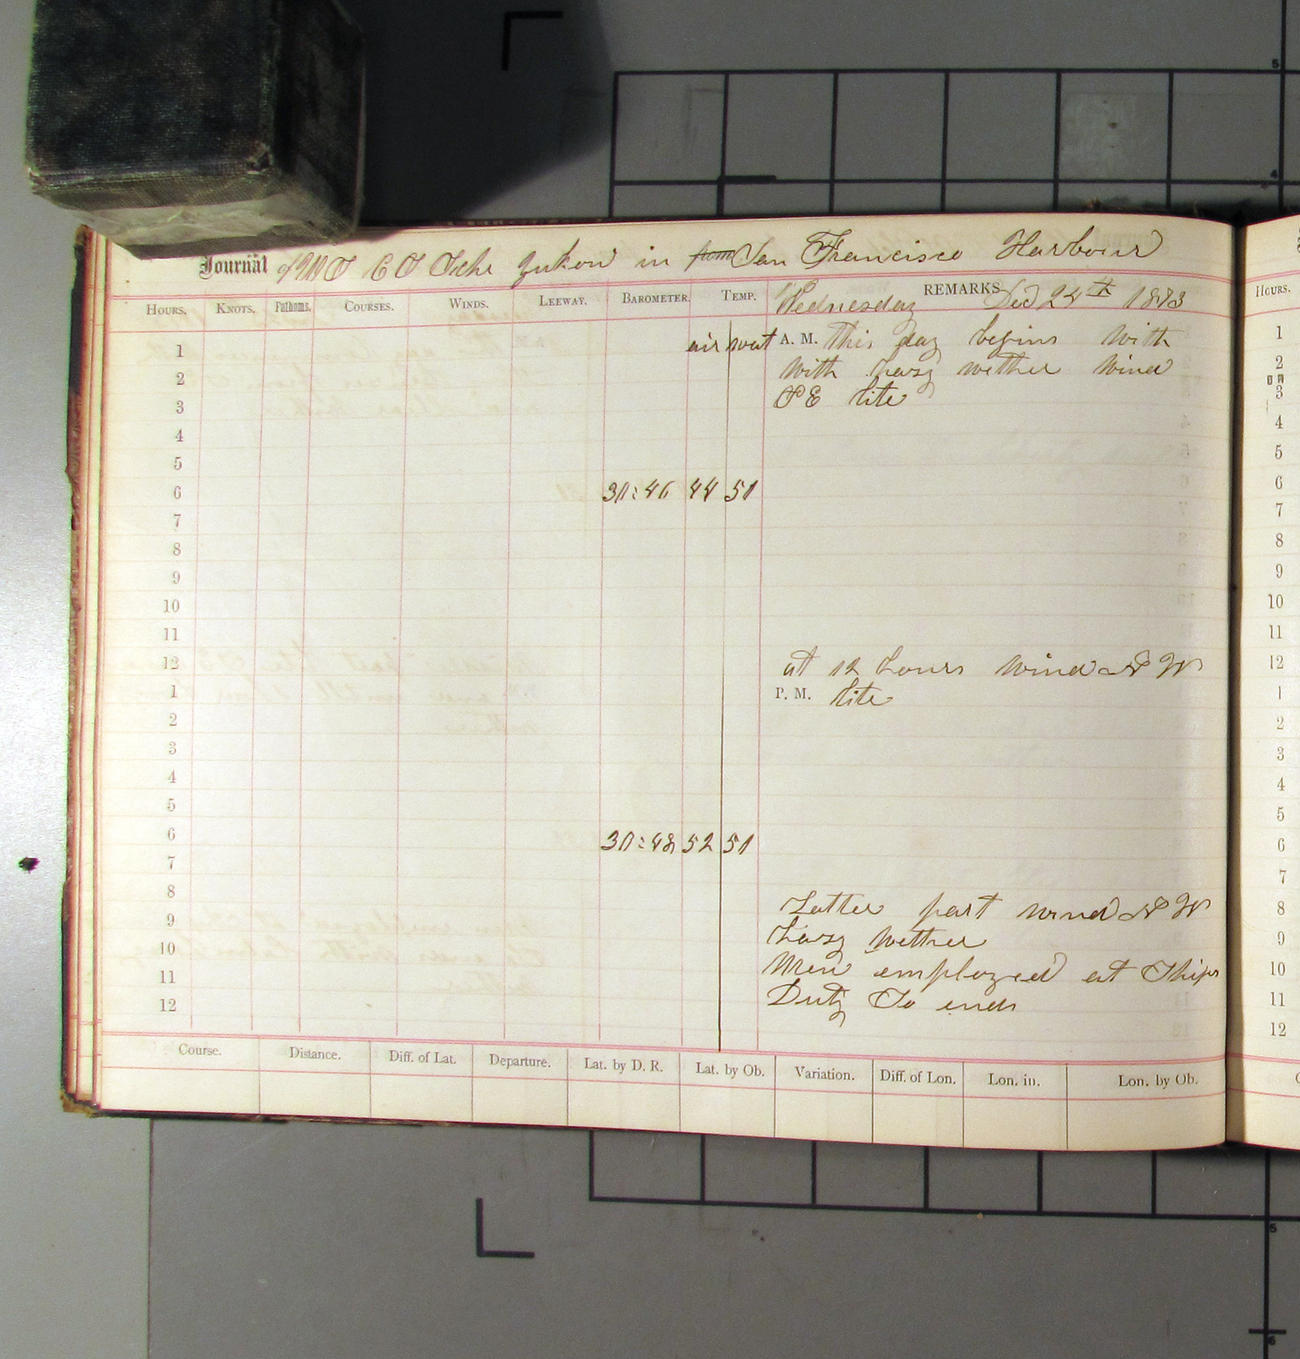 Journal of U S C S Schr Yukon in from San Francisco Harbour
HOURS. KNOTS. Fathoms. COURSES. WINDS. LEEWAY. BAROMETER. TEMP. REMARKS
Wednesday Dec 24th 1873
1 air wat A. M. this day begins with
2 with hasy wether wind
3 SE lite
4
5
6 30:46 44 51
7
8
9
10
11
12 at 12 hours wind N W
1 P. M. lite
2
3
4
5
6 30:48 52 51
7
8 Latter part wind N W
9 hasy wether
10 Men employed at Ships
11 Duty So ends
12
Course. Distance. Diff. of Lat. Departure. Lat. by D. R. Lat. by Ob. Variation. Diff. of Lon. Lon. in. Lon. by Ob.
HOURS.
1
2
3
4
5
6
7
8
9
10
11
12
1
2
3
4
5
6
7
8
9
10
11
12